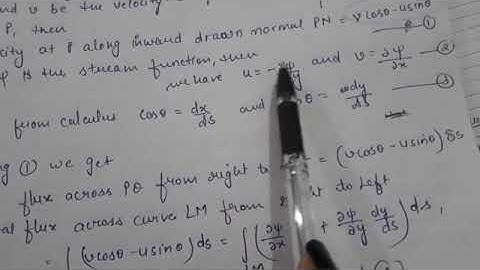 and v be the velocity
P, then
city at P along inward drawn normal PN = vcosθ-usinθ ①
ψ is the stream function, then
we have u = -∂ψ/∂y and v = ∂ψ/∂x — ②
from calculus cosθ = dx/ds and θ = dy/ds — ③
① we get
flux across PQ from right to = (vcosθ-usinθ)δs
al flux across curve LM from to left
= ∫(vcosθ-usinθ)ds = ∫(∂ψ/∂x + ∂ψ/∂y dy/ds)ds,
LM